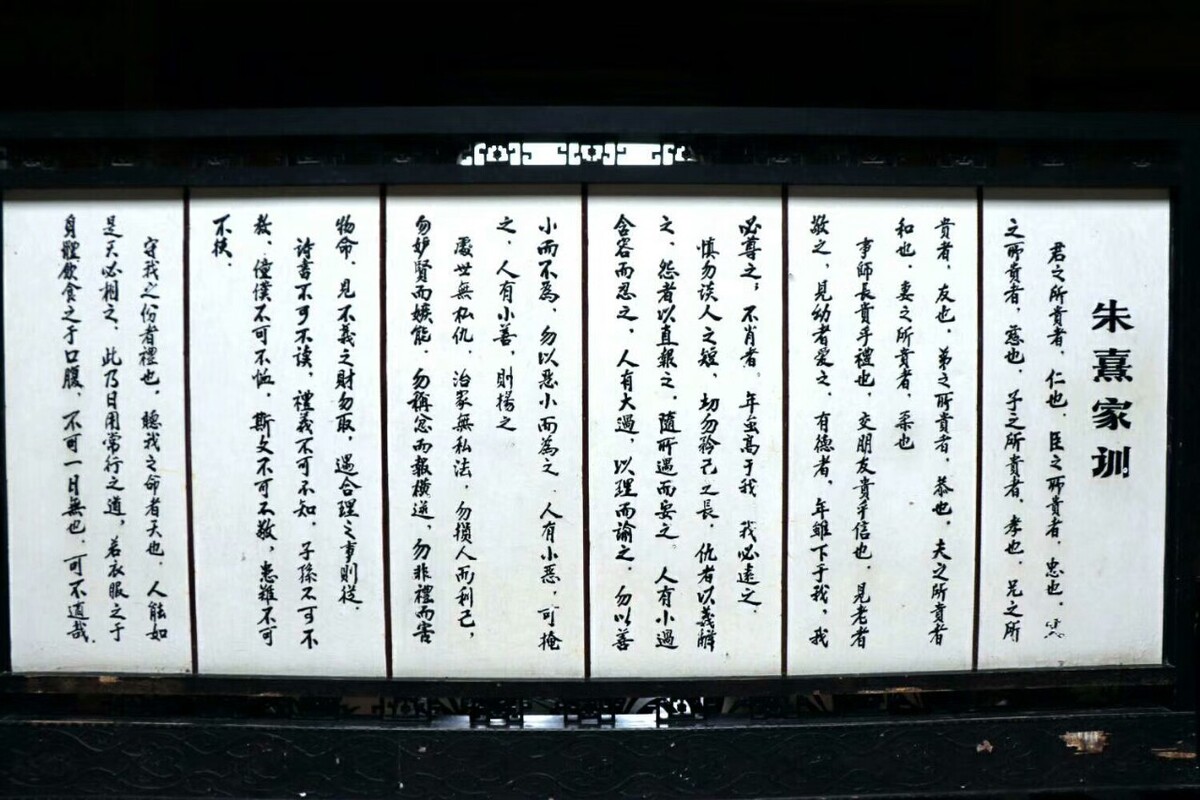 朱熹家训
君之所貴者，仁也，臣之所貴者，忠也，
之所貴者，慈也，子之所貴者，孝也，兄之所
貴者，友也，弟之所貴者，恭也，夫之所貴者
和也，妻之所貴者，柔也
事師長貴乎禮也，交朋友貴乎信也，見老者
敬之，見幼者爱之，有德者，年雖下于我，我
必尊之；不肖者，年虽高于我，我必遠之，
慎勿谈人之短，切勿矜己之長，仇者以義解
之，怨者以直報之，隨所遇而安之。人有小過
含容而忍之，人有大過，以理而諭之，勿以善
小而不為，勿以恶小而為之，人有小恶，可掩
之，人有小善，則揚之
處世無私仇，治家無私法，勿損人而利己，
勿妒賢而嫉能，勿稱忿而報橫逆，勿非禮而害
物命，見不義之財勿取，遇合理之事則從
诗書不可不读，禮義不可不知，子孫不可不
教，僮僕不可不恤，斯文不可不敬，患難不可
不扶，
守我之份者禮也，聽我之命者天也，人能如
是天必相之，此乃日用常行之道，若衣服之于
身體飲食之于口腹，不可一日無也，可不道哉.